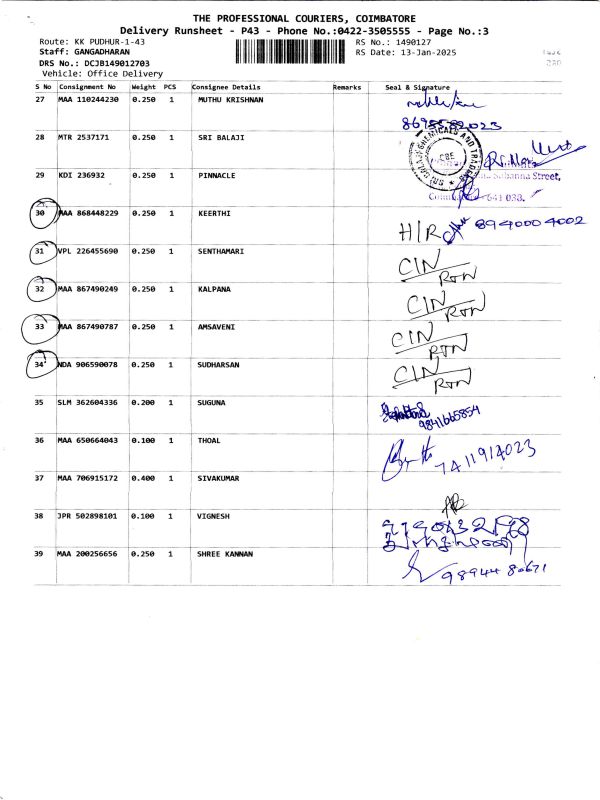 THE PROFESSIONAL COURIERS, COIMBATORE
Delivery Runsheet - P43 - Phone No.:0422-3505555 - Page No.:3
Route: KK PUDHUR-1-43 RS No.: 1490127
Staff: GANGADHARAN RS Date: 13-Jan-2025
DRS No.: DCJB149012703
Vehicle: Office Delivery
S No Consignment No Weight PCS Consignee Details Remarks Seal & Signature
27 MAA 110244230 0.250 1 MUTHU KRISHNAN
28 MTR 2537171 0.250 1 SRI BALAJI
29 KDI 236932 0.250 1 PINNACLE
30 MAA 868448229 0.250 1 KEERTHI H/R 8940004002
31 VPL 226455690 0.250 1 SENTHAMARI CIN RTN
32 MAA 867490249 0.250 1 KALPANA CIN RTN
33 MAA 867490787 0.250 1 AMSAVENI CIN RTN
34 NDA 906590078 0.250 1 SUDHARSAN CIN RTN
35 SLM 362604336 0.200 1 SUGUNA 9841665854
36 MAA 650664043 0.100 1 THOAL 7411914023
37 MAA 706915172 0.400 1 SIVAKUMAR
38 JPR 502898101 0.100 1 VIGNESH
39 MAA 200256656 0.250 1 SHREE KANNAN